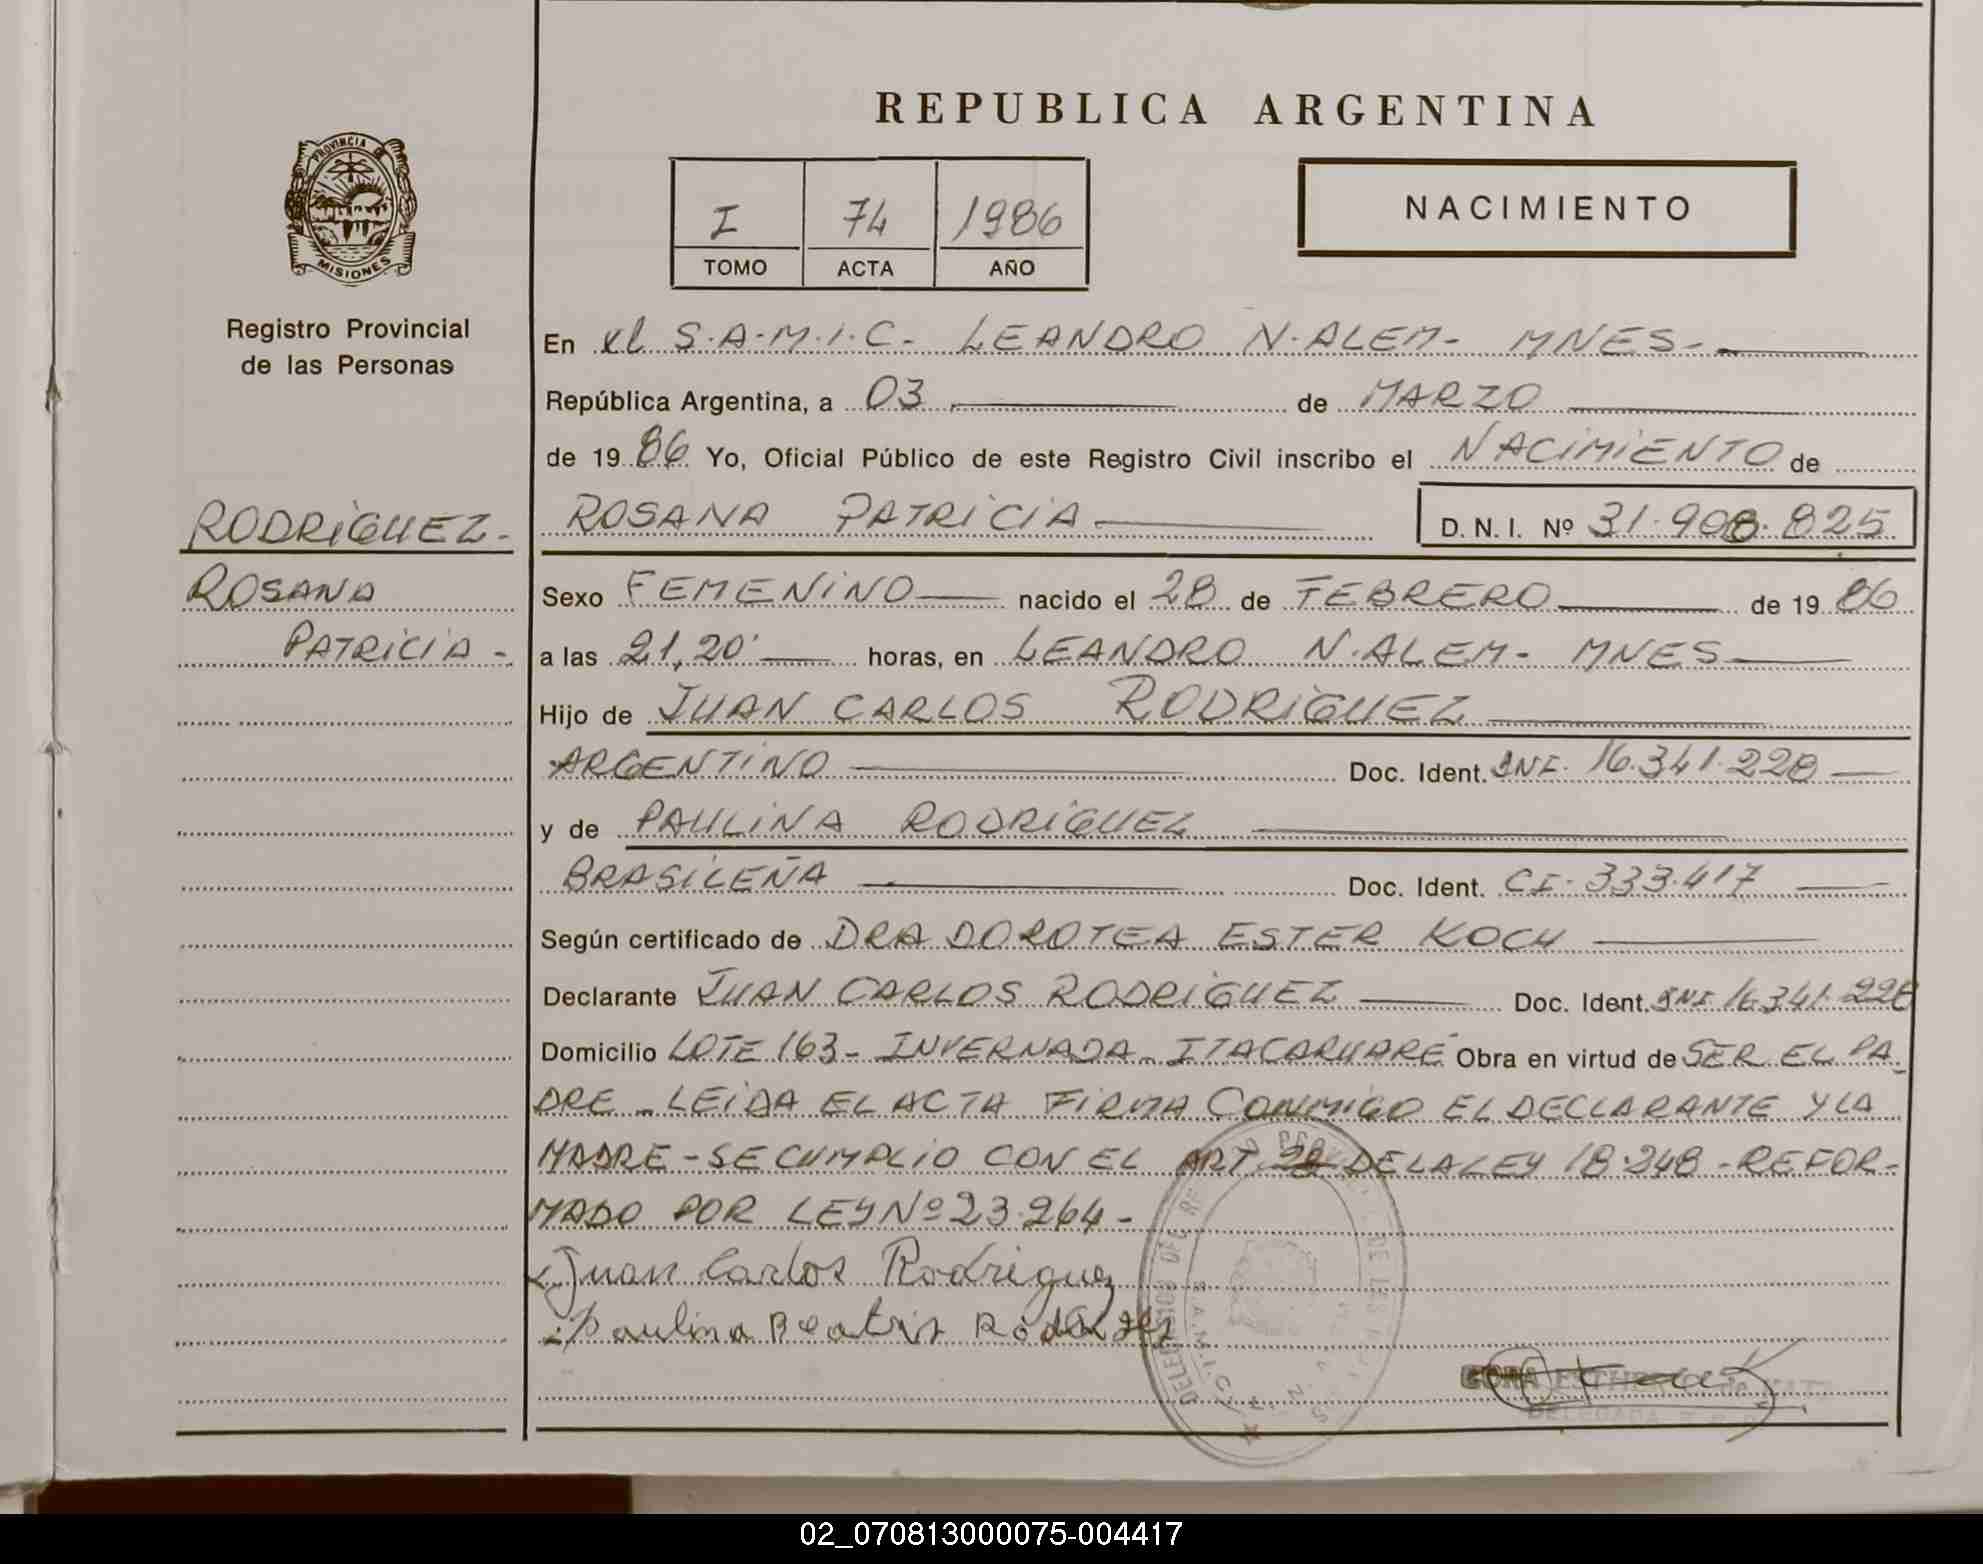 REPUBLICA ARGENTINA
PROVINCIA DE
MISIONES
Registro Provincial
de las Personas
I 74 1986
TOMO ACTA AÑO
NACIMIENTO
En el S.A.M.I.C. LEANDRO N. ALEM - MNES -
República Argentina, a 03 de MARZO
de 1986 Yo, Oficial Público de este Registro Civil inscribo el NACIMIENTO de
RODRIGUEZ -
ROSANA PATRICIA D. N. I. Nº 31.908.825
ROSANA
Sexo FEMENINO nacido el 28 de FEBRERO de 1986
PATRICIA -
a las 21,20' horas, en LEANDRO N. ALEM - MNES
Hijo de JUAN CARLOS RODRIGUEZ
ARGENTINO Doc. Ident. DNI. 16.341.228
y de PAULINA RODRIGUEZ
BRASILEÑA Doc. Ident. CI. 333.417
Según certificado de DRA DOROTEA ESTER KOCH
Declarante JUAN CARLOS RODRIGUEZ Doc. Ident. DNI 16.341.228
Domicilio LOTE 163 - INVERNADA - ITACARUARE Obra en virtud de SER EL PA
DRE - LEIDA EL ACTA FIRMA CONMIGO EL DECLARANTE Y LA
MADRE - SE CUMPLIO CON EL ART. DE LA LEY 18.248 - REFOR-
MADO POR LEY Nº 23.264 -
Juan Carlos Rodriguez
Paulina Beatris
S.A.M.I.C.
ESTHER
DELEGADA
02_070813000075-004417